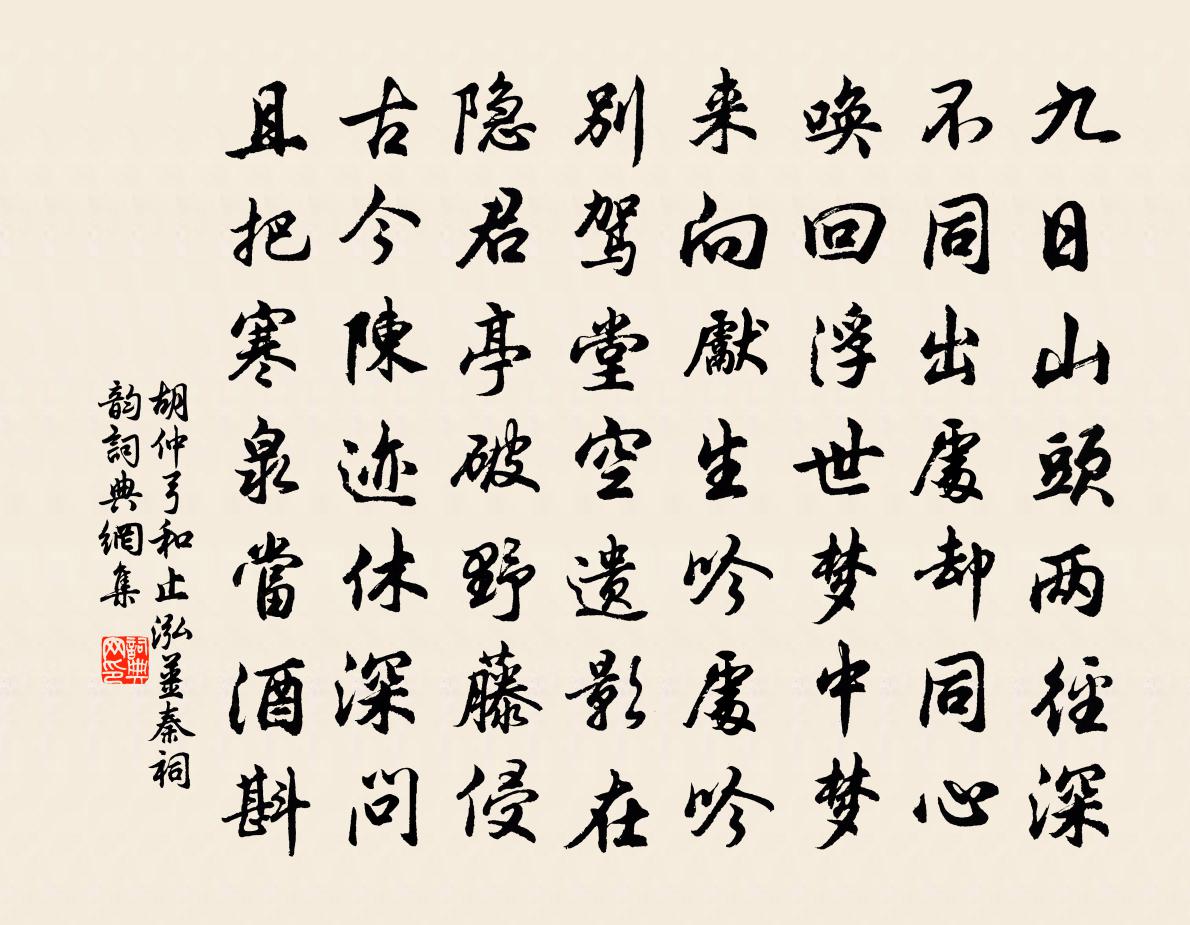 九日山頭两径深
不同出處却同心
唤回浮世梦中梦
来向獻生吟處吟
别驾堂空遗影在
隐君亭破野藤侵
古今陳迹休深问
且把寒泉當酒斟
胡仲弓和止泓並秦祠
韵詞典網集
詞典网印